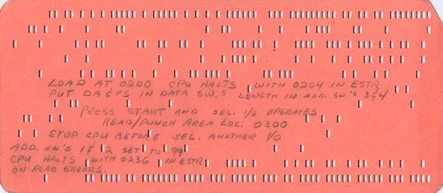 LOAD AT 0200 CPU HALTS WITH 0204 IN ESTR
PUT DACFS IN DATA SW'S LENGTH IN ADD. SW'S 3&4
PRESS START AND SEL. I/O OPERATES
READ/PUNCH AREA LOC. 0300
STOP CPU BEFORE SEL. ANOTHER I/O
ADD. SW'S 1 & 2 SET TO 99
CPU HALTS WITH 0236 IN ESTR
ON READ ERRORS.